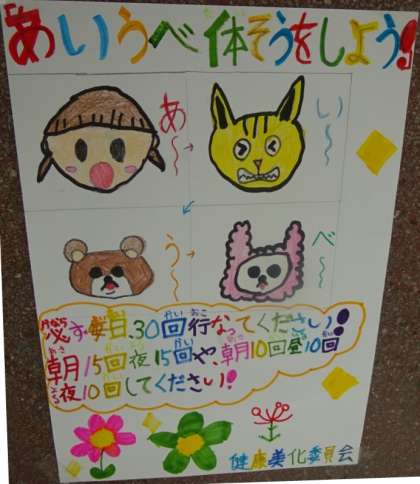 「あいうべ体そうをしよう!」
あ~
い~
う~
べ~
必ず毎日、30回行なってください!
朝15回夜15回や、朝10回昼10回
夜10回してください!
健康美化委員会